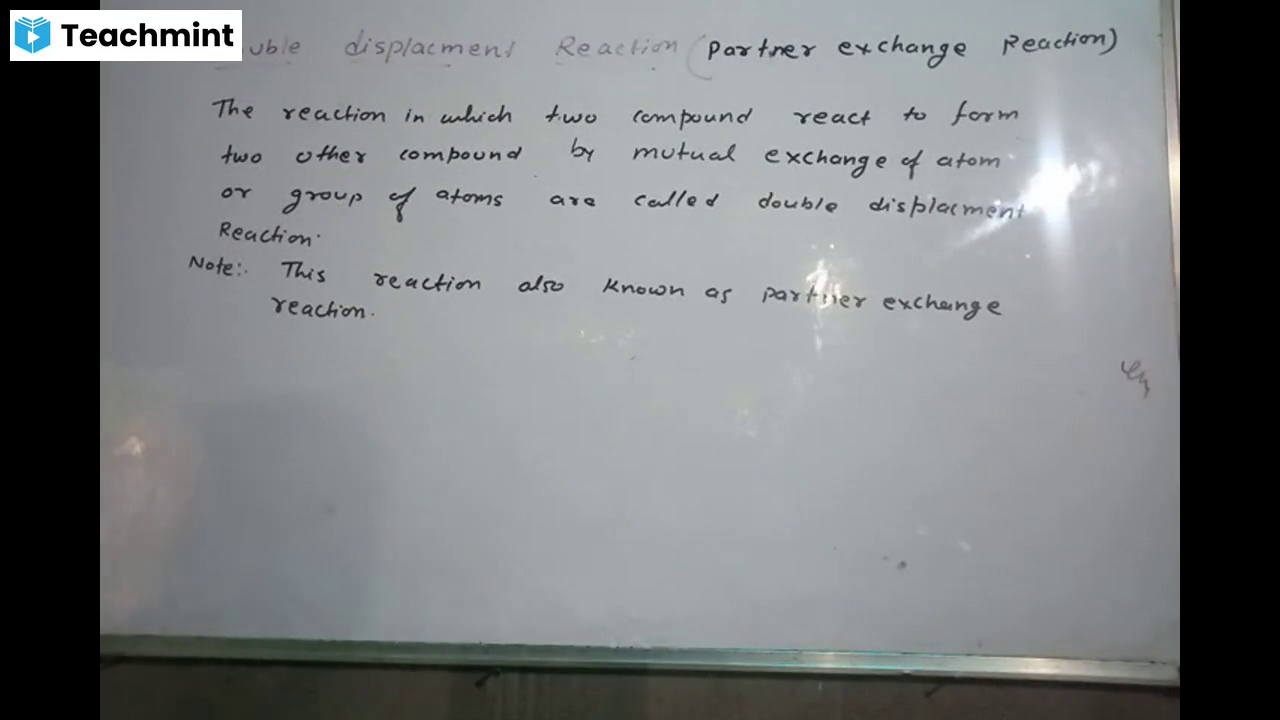 Teachmint
uble displacment Reaction (Partner exchange Reaction)
The reaction in which two compound react to form
two other compound by mutual exchange of atom
or group of atoms are called double displacment
Reaction.
Note:. This reaction also known as partner exchange
reaction.